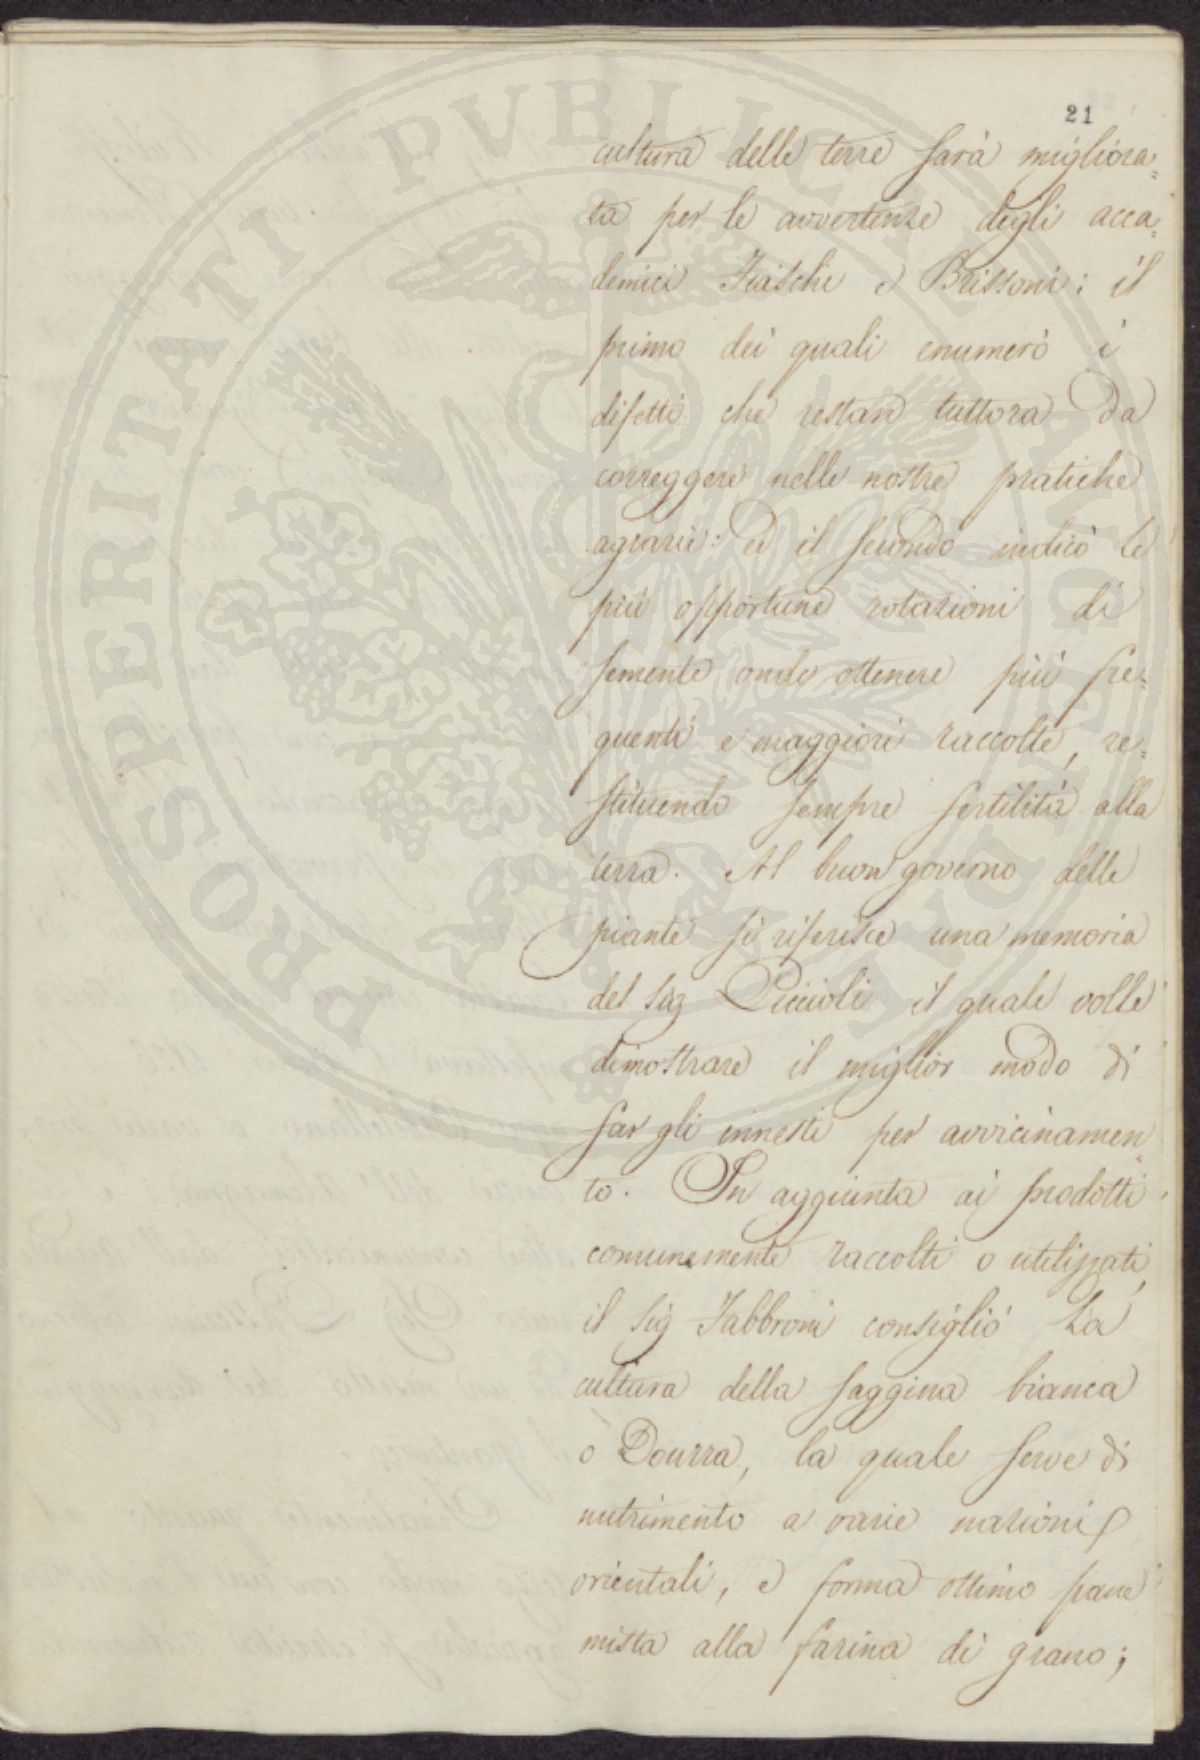 21
cultura delle terre sarà migliora=
ta per le avvertenze degli acca=
demici Fraschi e Brissoni: il
primo dei quali enumerò i
difetti che restan tuttora da
correggere nelle nostre pratiche
agrarie: ed il secondo indicò le
più opportune rotazioni di
semente onde ottenere più fre=
quenti e maggiori raccolte, re=
stituendo sempre fertilità alla
terra. Al buon governo delle
piante si riferisce una memoria
del Sig Piccioli il quale volle
dimostrare il miglior modo di
far gli innesti per avvicinamen=
to. In aggiunta ai prodotti
comunemente raccolti o utilizzati,
il Sig Fabbroni consigliò La
cultura della saggina bianca
o Dourra, la quale serve di
nutrimento a varie nazioni
orientali, e forma ottimo pane
mista alla farina di grano;
PROSPERITATI PVBLICAE AVGENDAE